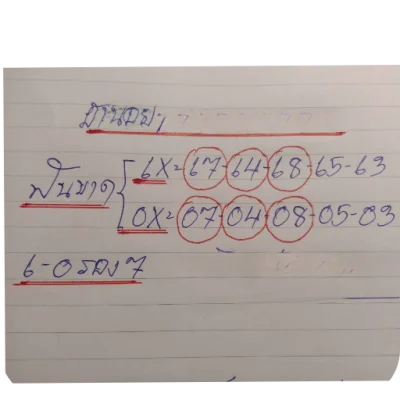 ฮานอย,
ฟันขาด { 6X = 67-64-68-65-63
0X = 07-04-08-05-03
6-0 รอง 7